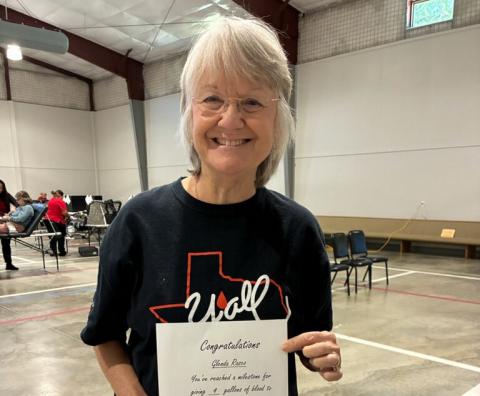 y'all
Congratulations
Glenda Rasco
You've reached a milestone for
giving 9 gallons of blood to